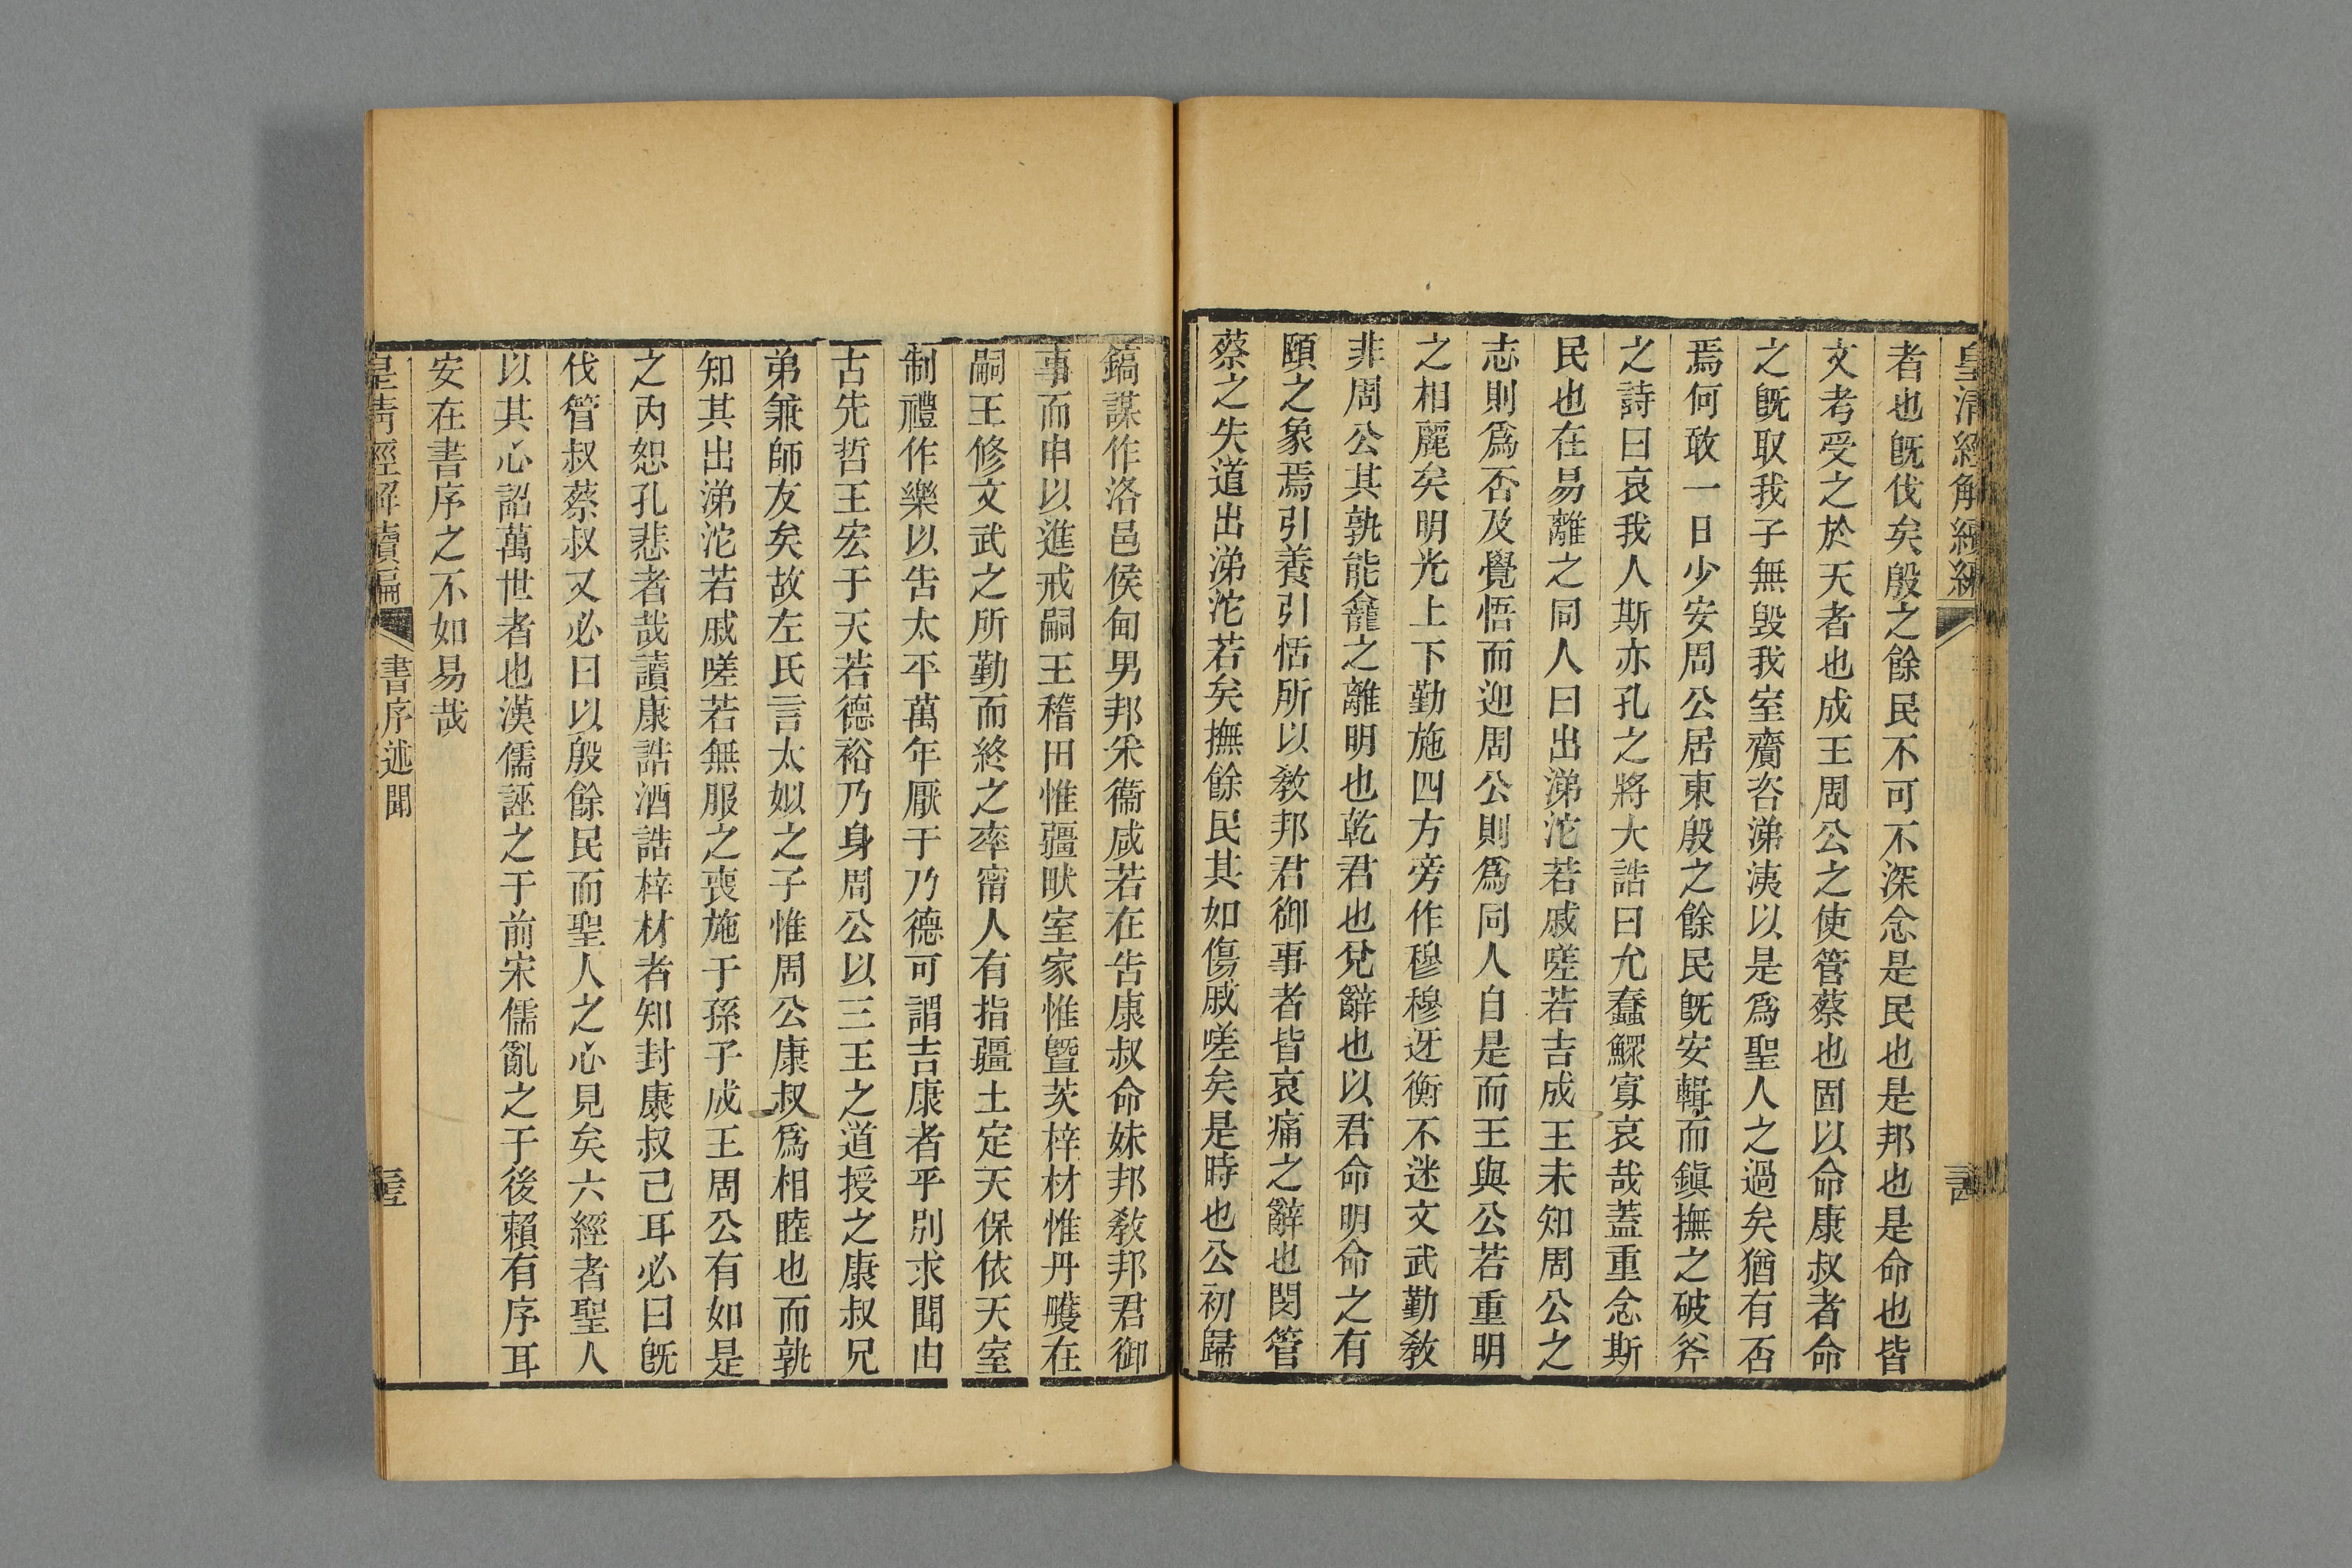 皇清經解續編
者也旣伐矣殷之餘民不可不深念是民也是邦也是命也皆
文考受之於天者也成王周公之使管蔡也固以命康叔者命
之旣取我子無毀我室齎咨涕洟以是爲聖人之過矣猶有否
焉何敢一日少安周公居東殷之餘民旣安輯而鎭撫之破斧
之詩曰哀我人斯亦孔之將大誥曰允蠢鰥寡哀哉蓋重念斯
民也在易離之同人曰出涕沱若戚嗟若吉成王未知周公之
志則爲否及覺悟而迎周公則爲同人自是而王與公若重明
之相麗矣明光上下勤施四方旁作穆穆迓衡不迷文武勤敎
非周公其孰能龕之離明也乾君也兌辭也以君命明命之有
頤之象焉引養引恬所以敎邦君御事者皆哀痛之辭也閔管
蔡之失道出涕沱若矣撫餘民其如傷戚嗟矣是時也公初歸
鎬謀作洛邑侯甸男邦采衞咸若在告康叔命妹邦敎邦君御
事而申以進戒嗣王稽田惟疆畎室家惟曁茨梓材惟丹雘在
嗣王修文武之所勤而終之率甯人有指疆土定天保依天室
制禮作樂以告太平萬年厭于乃德可謂吉康者乎別求聞由
古先哲王宏于天若德裕乃身周公以三王之道授之康叔兄
弟兼師友矣故左氏言太姒之子惟周公康叔爲相睦也而孰
知其出涕沱若戚嗟若無服之喪施于孫子成王周公有如是
之內恕孔悲者哉讀康誥酒誥梓材者知封康叔己耳必曰旣
伐管叔蔡叔又必曰以殷餘民而聖人之心見矣六經者聖人
以其心詔萬世者也漢儒誣之于前宋儒亂之于後賴有序耳
安在書序之不如易哉
皇淸經解續編 書序述聞